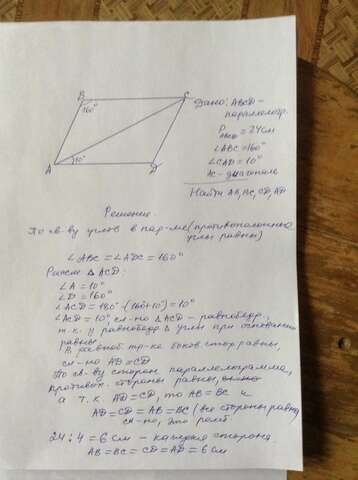 B
C
160°
A
10°
D
Дано: ABCD-
параллелогр.
P ABCD = 24 см
∠ABC = 160°
∠CAD = 10°
AC - диагональ
Найти AB, BC, CD, AD
Решение.
По св-ву углов в пар-ме (противоположные
углы равны)
∠ABC = ∠ADC = 160°
Рассм △ ACD:
∠A = 10°
∠D = 160°
∠ACD = 180° - (160+10°) = 10°
∠ACD = 10° сл-но △ACD - равнобедр.,
т.к. у равнобедр △ углы при основании
равны
В равноб. тр-ке боков. стор равны,
сл-но AD = CD
По св-ву сторон параллелограмма,
противоп. стороны равны,
а т.к. AD = CD, то AB = BC и
AD = CD = AB = BC (все стороны равны
сл-но, это ромб
24 : 4 = 6 см - каждая сторона
AB = BC = CD = AD = 6 см